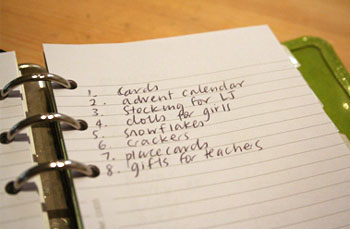 1. cards
2. advent calendar
3. stocking for LJ
4. dolls for girls
5. snowflakes
6. crackers
7. placecards
8. gifts for teachers